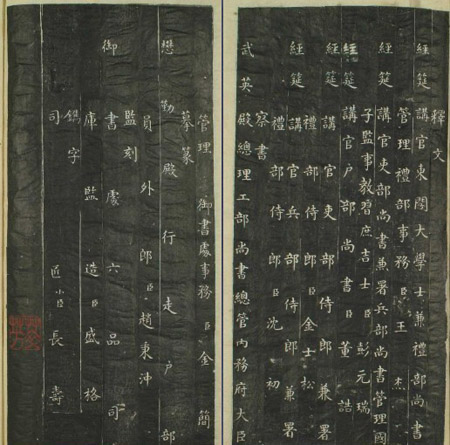 釋文
經筵講官東閣大學士兼禮部尚書
管理禮部事務臣王杰
經筵講官吏部尚書兼署兵部尚書管理國
子監事教習庶吉士臣彭元瑞
經筵講官戶部尚書臣董誥
經筵講官吏部侍郎兼署
禮部侍郎臣金士松
經筵講官兵部侍郎兼署
禮部侍郎臣沈初
察書
武英殿總理工部尚書總管內務府大臣
管理御書處事務臣金簡
摹篆
懋勤殿行走戶部
員外郎臣趙秉沖
監刻
御書處六品司
庫監造臣盛格
鐫字
司匠小臣長壽